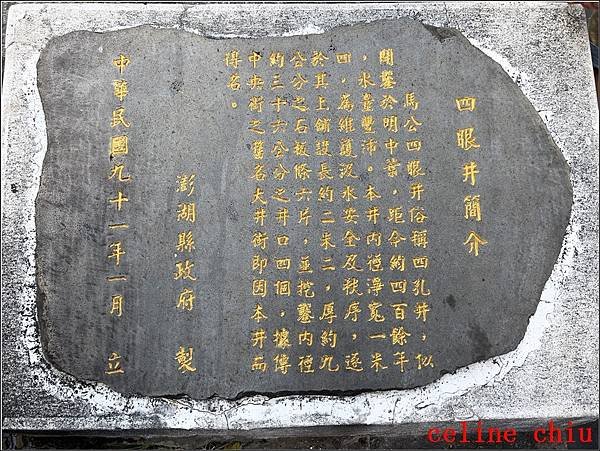 四眼井簡介
馬公四眼井俗稱四孔井，似
開鑿於明中葉，距今約四百餘年
，水量豐沛。本井內徑渾寬一米
四，為維護汲水安全及秩序，遂
於其上舖設長約二米二，厚約九
公分之石板條六片，並挖鑿內徑
約三十六公分之井口四個，據傳
中央街之舊名大井街即因本井而
得名。
澎湖縣政府 製
中華民國九十一年一月 立
celine chiu